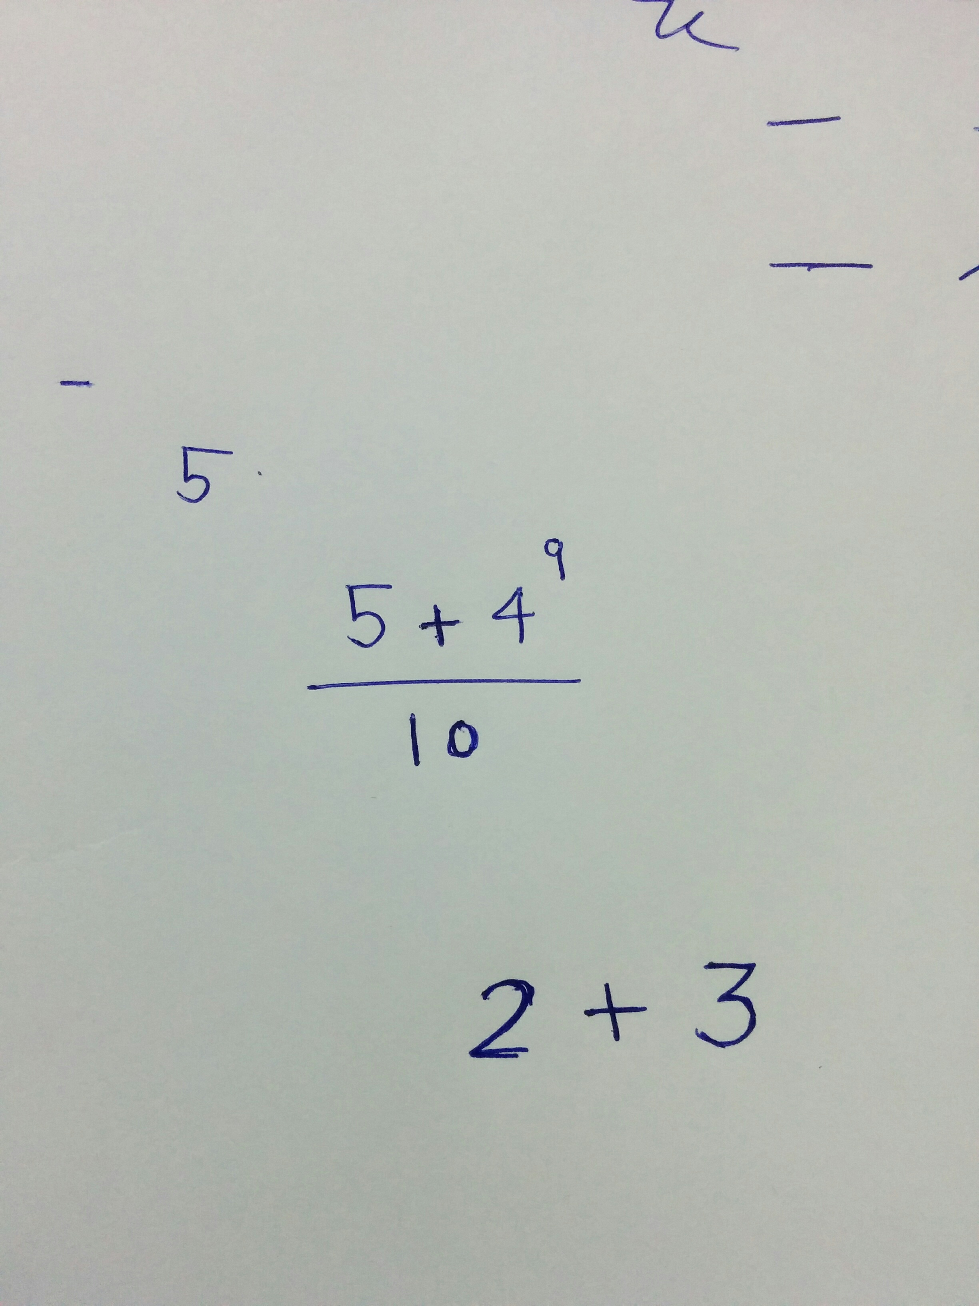 5
5 + 4^9
10
2 + 3